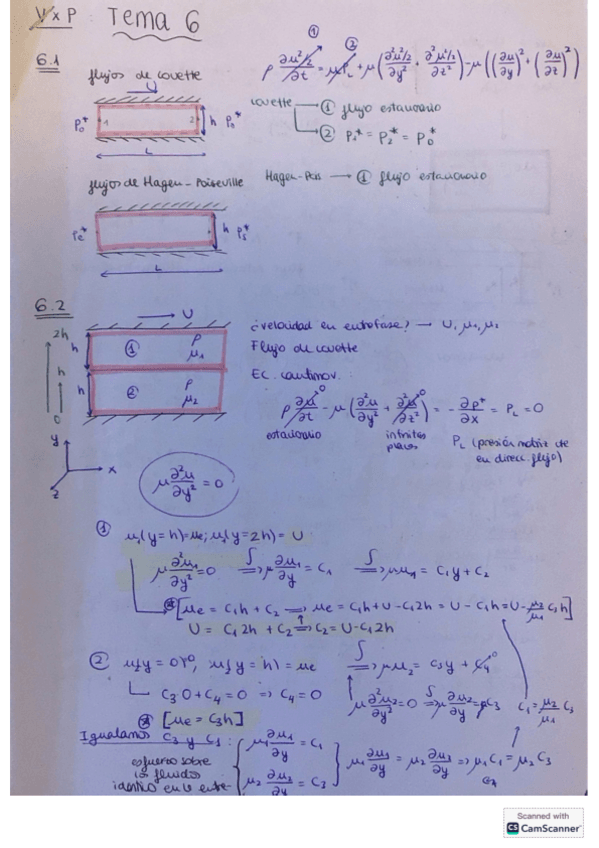 V x P Tema 6
6.1
flujos de couette
U
P₀* 1 2 h P₀*
L
① ②
ρ ∂u²/2 / ∂t = u P_L + μ (∂²u²/2 / ∂y² + ∂²u²/2 / ∂z²) - μ ((∂u/∂y)² + (∂u/∂z)²)
couette → ① flujo estacionario
→ ② P₁* = P₂* = P₀*
flujos de Hagen-Poiseville
Hagen-Pois → ① flujo estacionario
h
L
6.2
U
2h
h
0
h ① ρ μ₁
h ② ρ μ₂
y
x
z
¿velocidad en entrefase? → U, μ₁, μ₂
Flujo de couette
Ec. cantimov.
ρ ∂u/∂t - μ (∂²u/∂y² + ∂²u/∂z²) = - ∂p*/∂x = P_L = 0
estacionario infinitas placas P_L (presión motriz
en direcc. flujo)
μ ∂²u/∂y² = 0
① u₁(y = h) = ue; u₁(y = 2h) = U
μ ∂²u₁/∂y² = 0 ∫⇒ μ ∂u₁/∂y = C₁ ∫⇒ = C₁y + C₂
[ue = C₁h + C₂ ⇒ ue = C₁h + U - C₁2h = U - C₁h = U - μ₂/μ₁ C₃h]
U = C₁2h + C₂ ⇒ C₂ = U - C₁2h
② u₂(y = 0) = 0, u₂(y = h) = ue ∫⇒ u₂ = C₃y + C₄
C₃·0 + C₄ = 0 ⇒ C₄ = 0
μ ∂²u₂/∂y² = 0 ∫⇒ C₃
C₁ = μ₂/μ₁ C₃
[ue = C₃h]
Igualamos C₃ y C₁:
esfuerzo sobre
los fluidos
identico en la entre-
μ₁ ∂u₁/∂y = C₁
μ₂ = C₃
μ₁ ∂u₁/∂y = μ₂ ⇒ μ₁C₁ = μ₂C₃
Scanned with
CS CamScanner